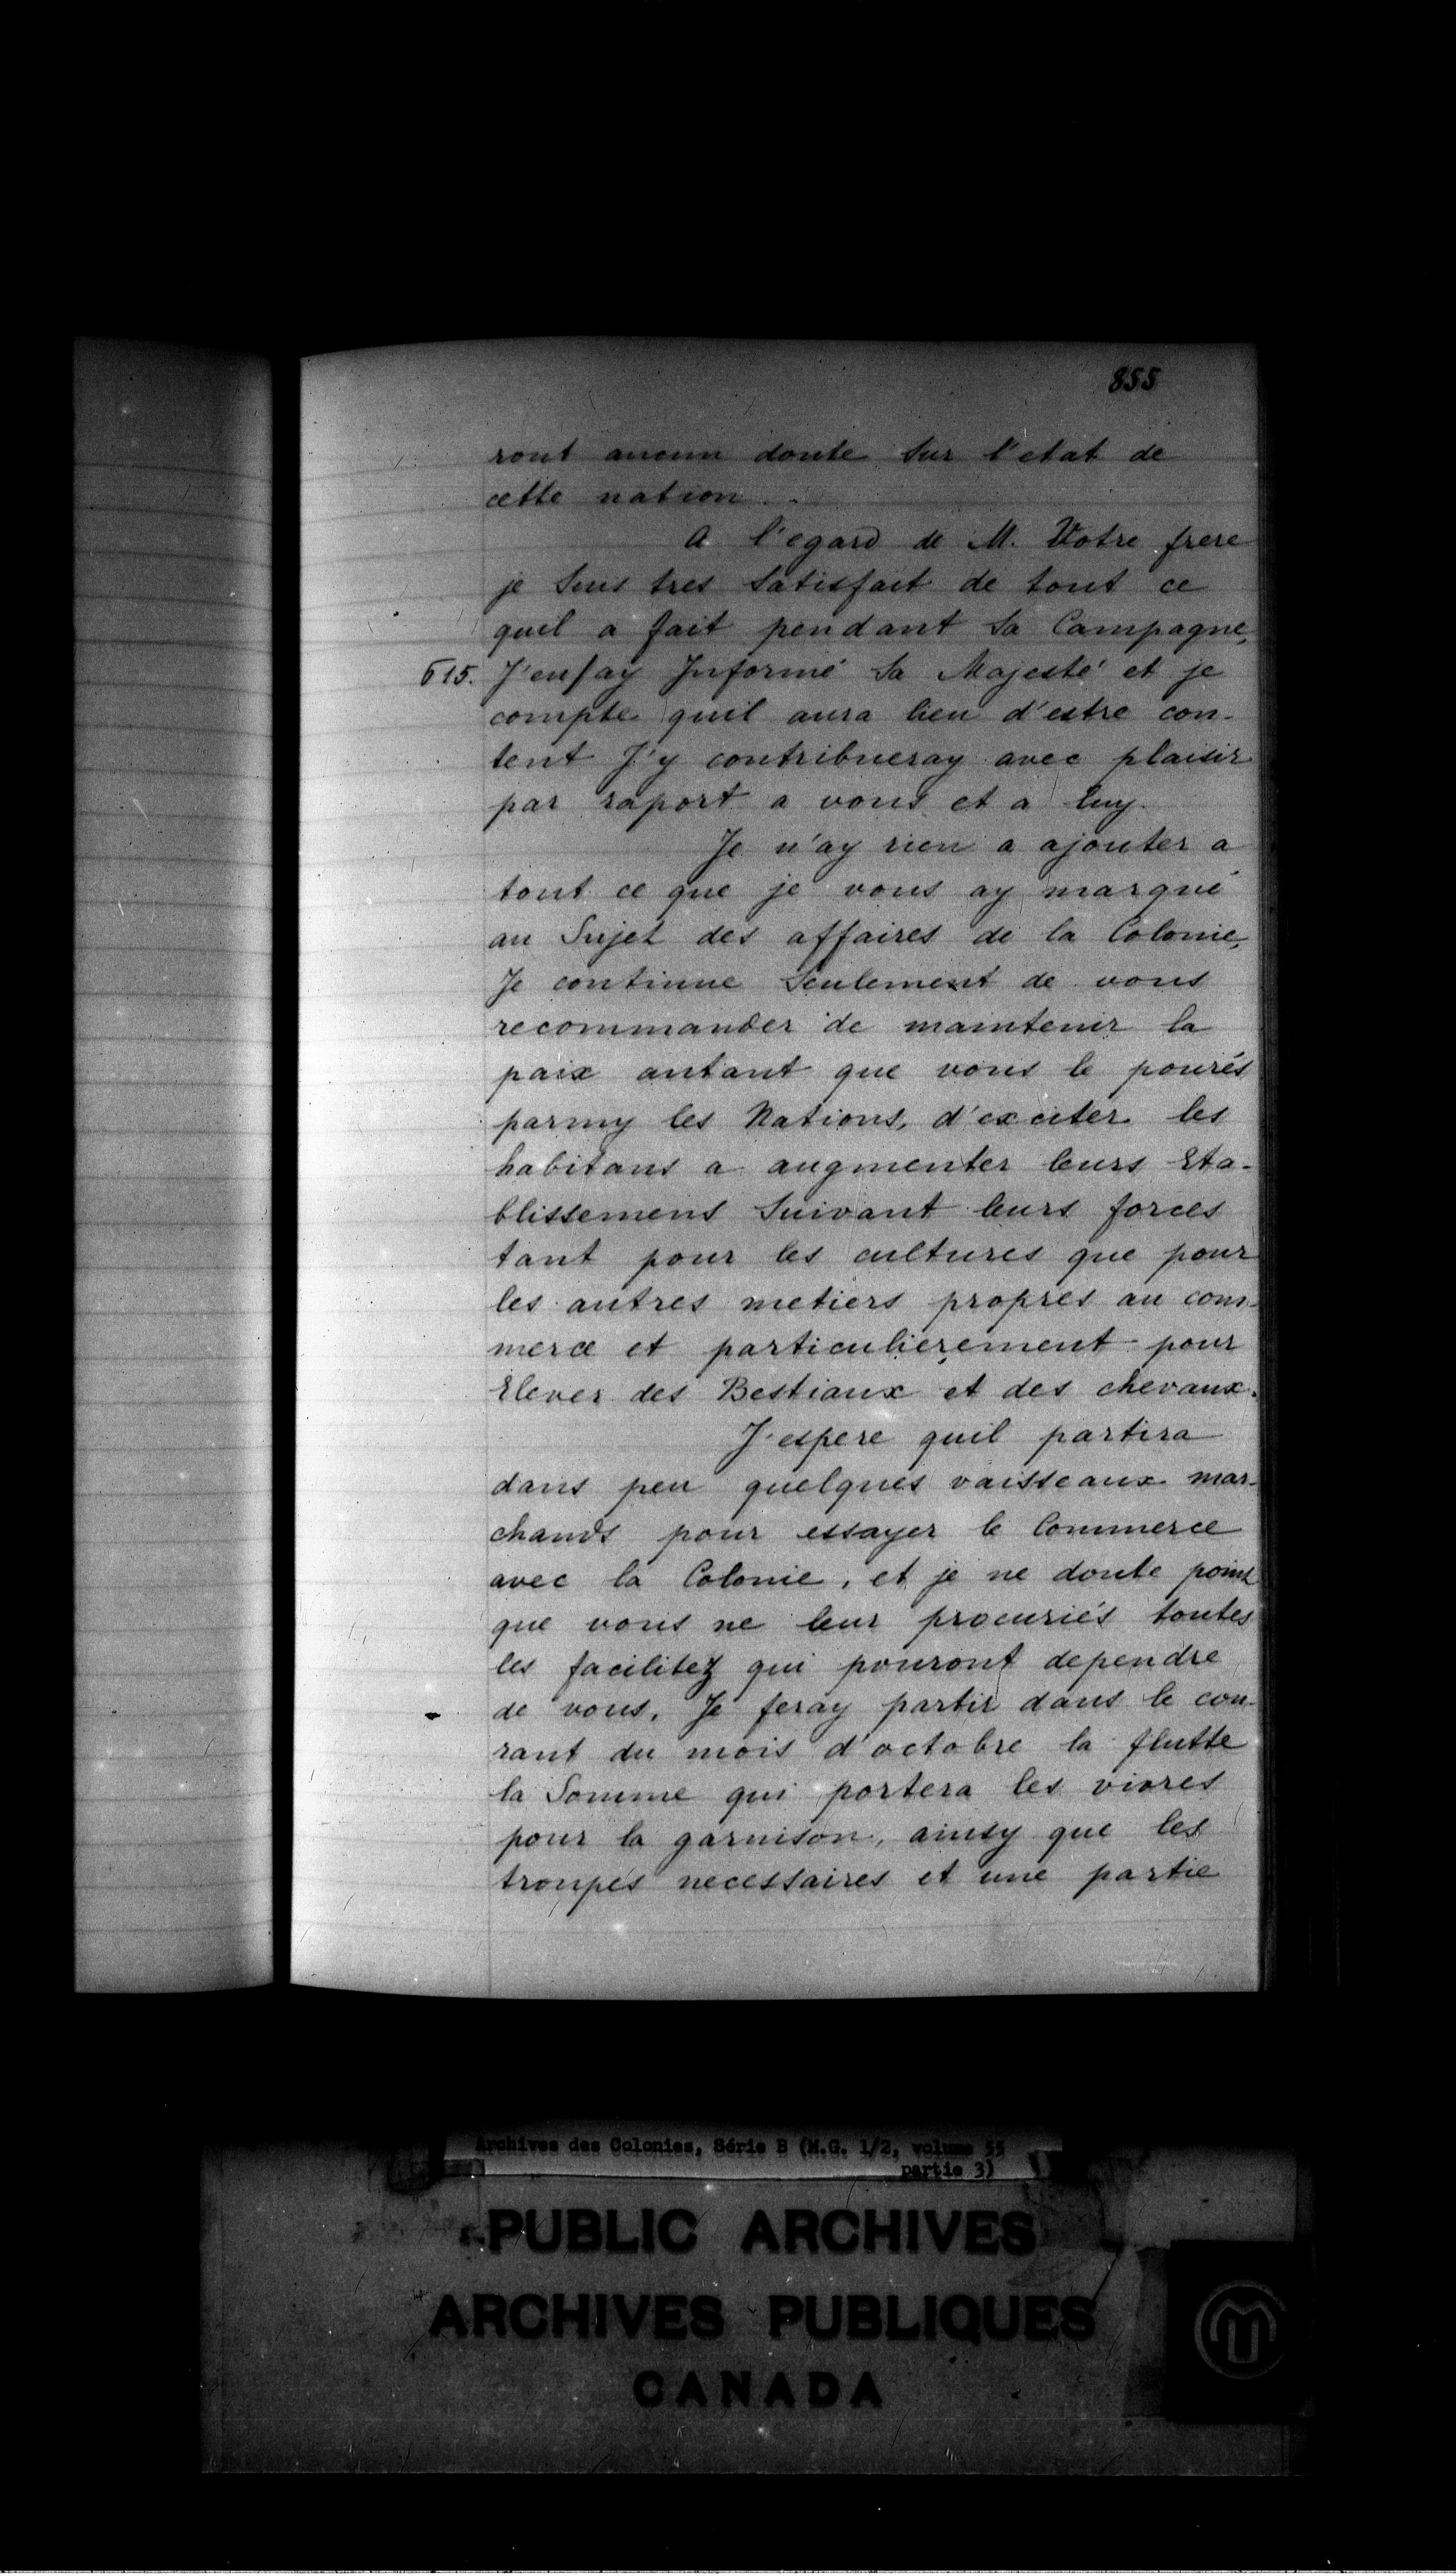 855
ront aucun doute sur l'etat de
cette nation.
A l'egard de M. Votre frere
je suis tres satisfait de tout ce
quil a fait pendant sa Campagne,
615. J'en/ay Informé sa Majesté et je
compte quil aura lieu d'estre con-
tent J'y contribueray avec plaisir
par raport a vous et a luy.
Je n'ay rien a ajouter a
tout ce que je vous ay marqué
au Sujet des affaires de la Colonie,
Je continue seulement de vous
recommander de maintenir la
paix autant que vous le pourés
parmy les Nations, d'exciter les
habitans a augmenter leurs Eta-
blissemens suivant leurs forces
tant pour les cultures que pour
les autres metiers propres au com-
merce et particulierement pour
Elever des Bestiaux et des chevaux.
J'espere quil partira
dans peu quelques vaisseaux mar-
chands pour essayer le Commerce
avec la Colonie, et je ne doute point
que vous ne leur procuriés toutes
les facilitez qui pouront dependre
de vous, Je feray partir dans le cou-
rant du mois d'octobre la flutte
la Somme qui portera les vivres
pour la garnison, ainsy que les
troupes necessaires et une partie
Archives des Colonies, Série B (M.G. 1/2, volume 55
partie 3)
PUBLIC ARCHIVES
ARCHIVES PUBLIQUES
CANADA